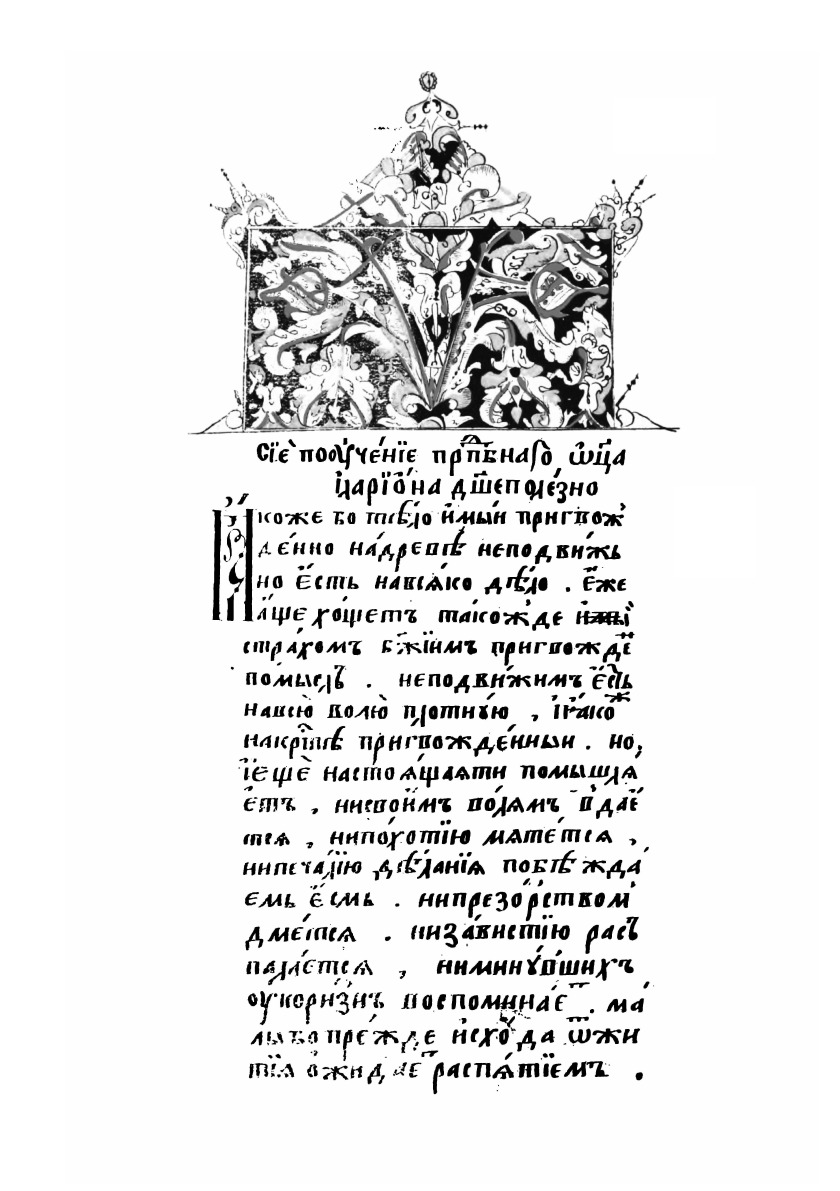 Сїѐ поꙋче́нїе прпⷣбнаго ѡ҆ц҃а
їларїѡ́на дш҃еполе́зно
Ꙗ҆коже бо тѣ́ло и҆мы́и пригвож̾
де́нно на́древѣ неподви́жь
но є҆́сть навсѧ́ко дѣ́ло . є҆́же
а҆́ще хо́щетъ тако́жде и
стра́хомъ бж҃їимъ пригвожде́
помы́слъ . неподви́жимъ є҆́сть
навсю̀ волю̀ пло́тную , ꙗ҆́коⷤ
накрⷭ҇тѣ̀ пригвожде́нныи . но,
їещѐ настоѧ́щаѧти помышлѧ́
етъ , нисвои́мъ во́лѧмъ вдае́
тсѧ , нипо́хотїю мѧте́тсѧ ,
нипеча́лїю дѣ́ланїѧ побѣжда́
емь є҆́смь . нипрезо́рствомъ
дме́тсѧ . низа́вистїю расъ
пала́етсѧ , нимину́вшихъ
оу҆кори́знъ воспомина́еⷮ . ма́
лы бо пре́жде и҆схо́да ѿжи
тїѧ ѡ҆жида́еⷮ распѧ́тїемъ .